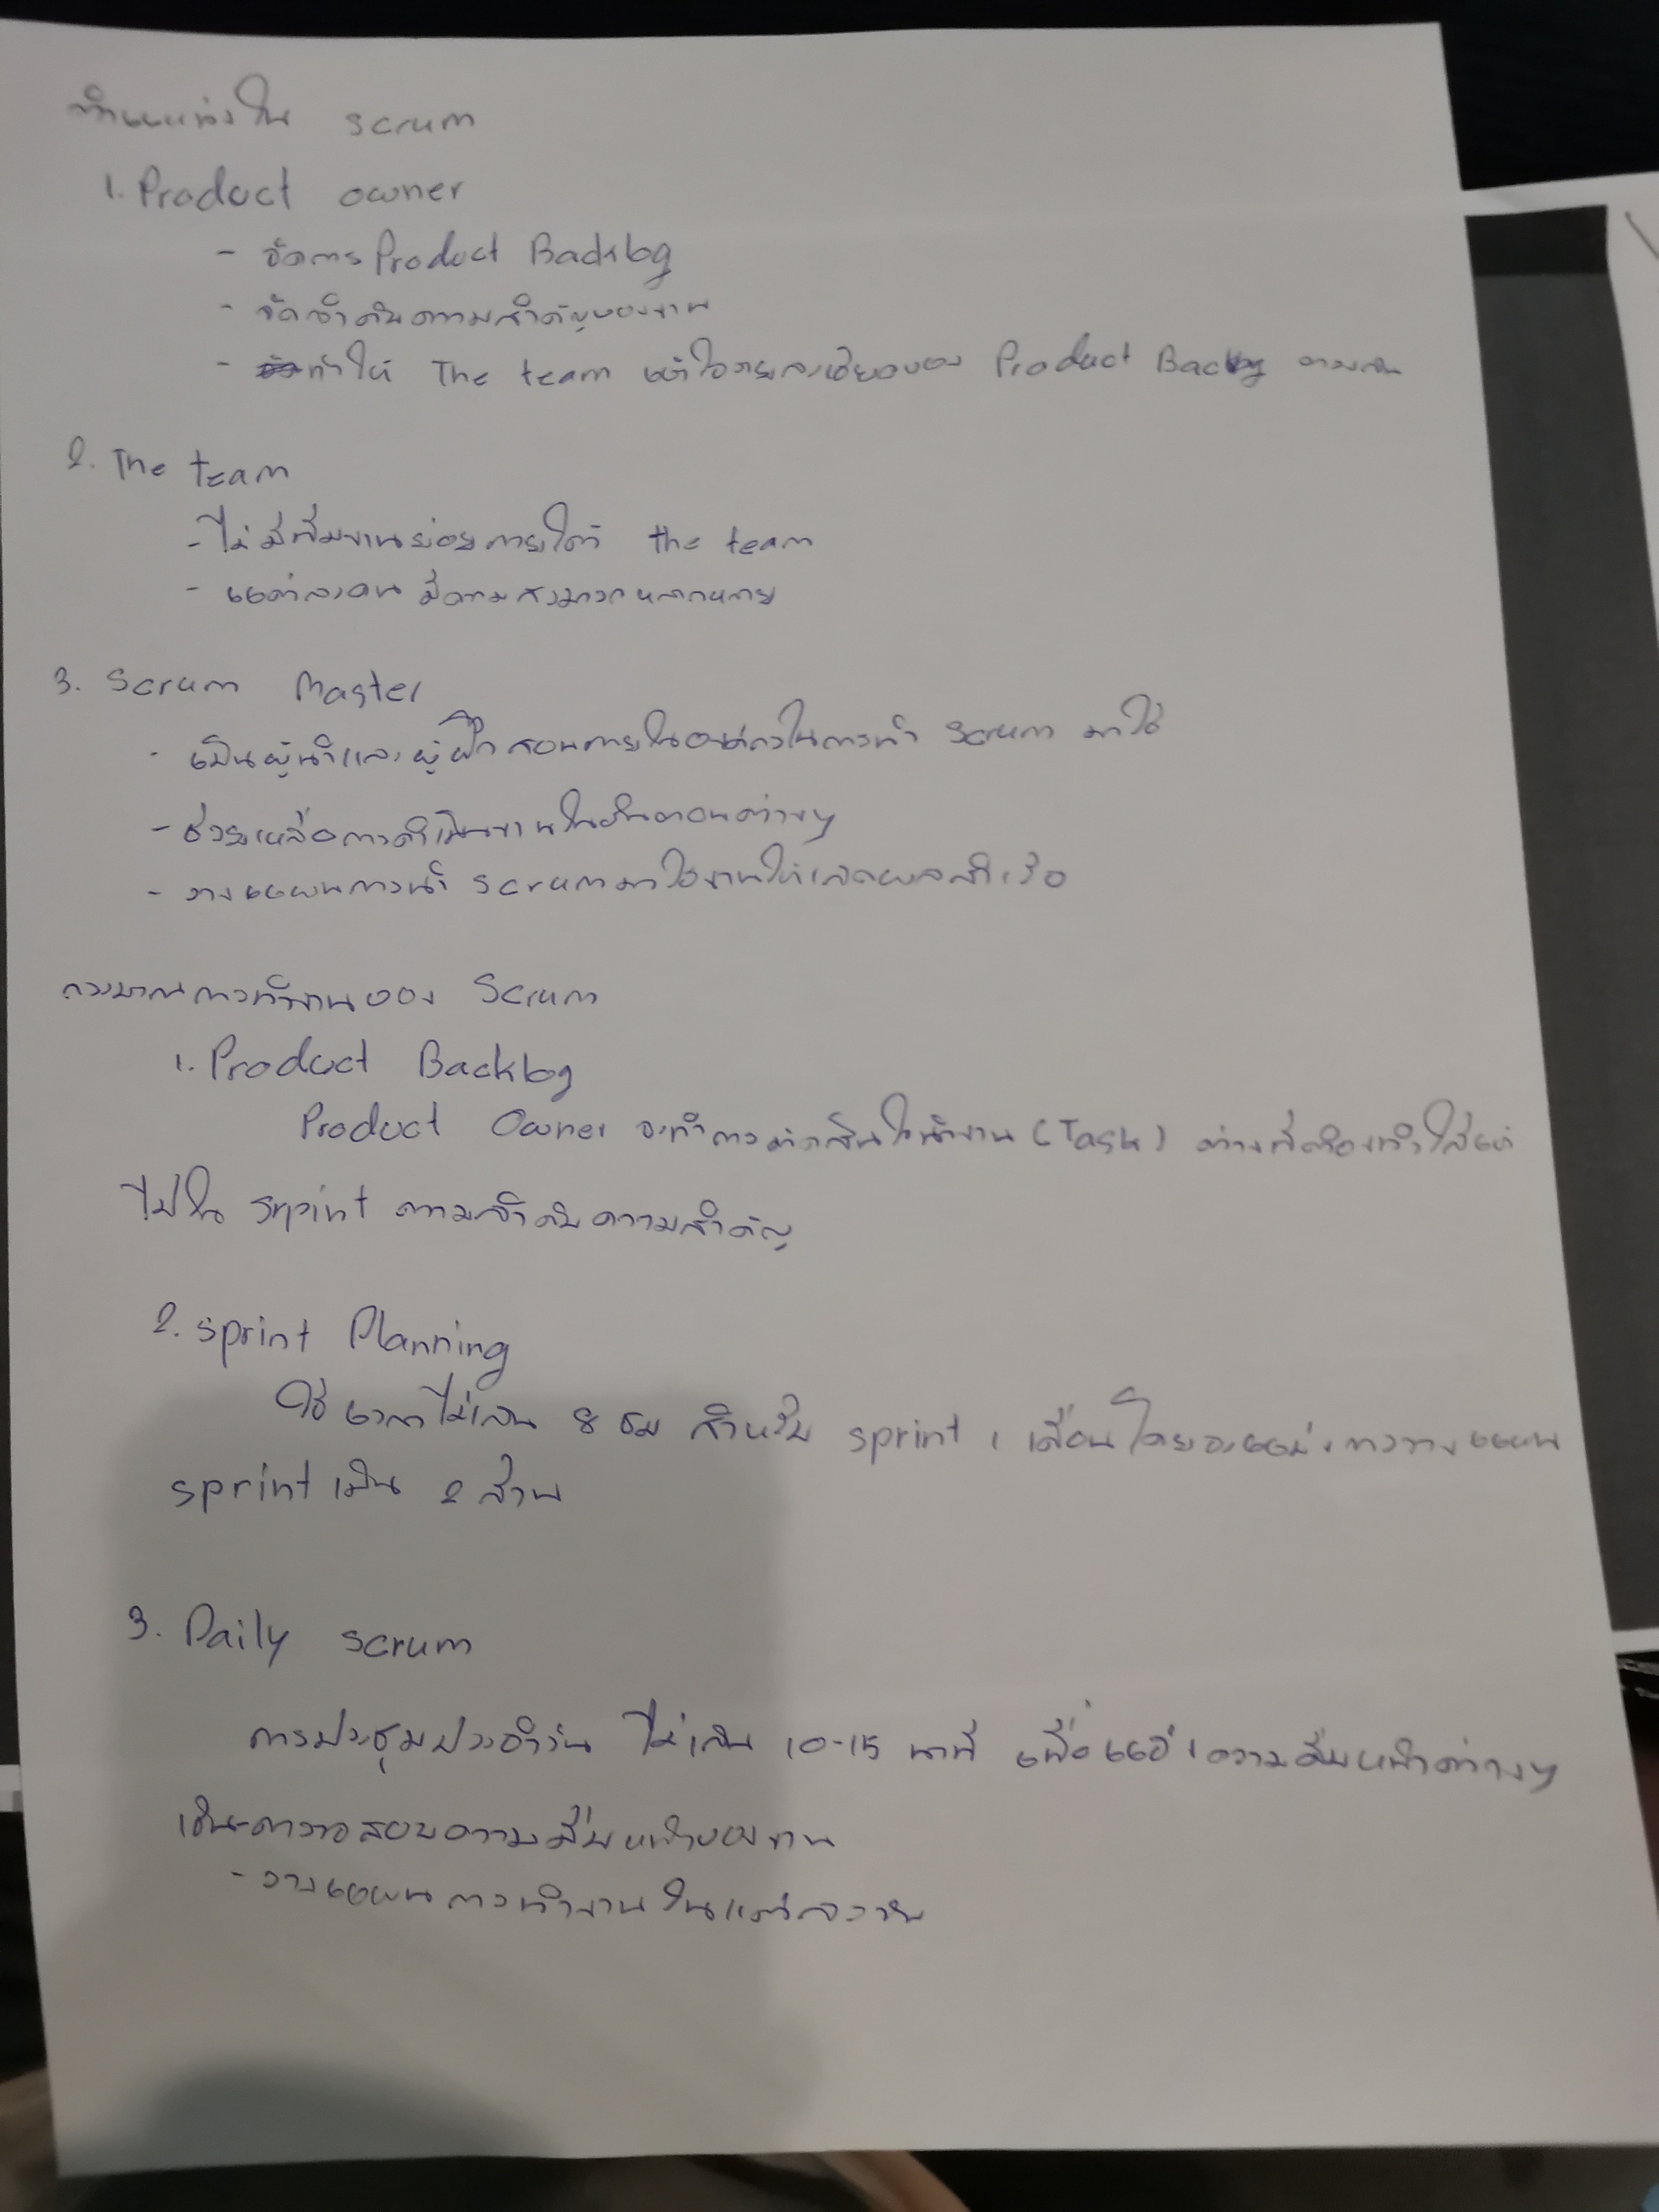 ตำแหน่งใน scrum
1. Product owner
- จัดการ Product Backlog
- จัดลำดับความสำคัญของงาน
- ทำให้ The team เข้าใจรายละเอียดของ Product Backlog ตรงกัน
2. The team
- ไม่มีทีมงานย่อยภายใต้ the team
- แต่ละคน มีความสามารถหลากหลาย
3. Scrum Master
- เป็นผู้นำและผู้ฝึกสอนภายในองค์กรในการนำ Scrum มาใช้
- ช่วยเหลือการดำเนินงานในขั้นตอนต่างๆ
- วางแผนการนำ Scrum มาใช้งานให้เกิดผลสำเร็จ
กระบวนการทำงานของ Scrum
1. Product Backlog
Product Owner จะทำการตัดสินใจนำงาน (Task) ต่างที่ต้องทำใส่เข้า
ไปใน Sprint ตามลำดับความสำคัญ
2. sprint Planning
ใช้เวลาไม่เกิน 8 ชม สำหรับ sprint 1 เดือนโดยจะแบ่งการวางแผน
sprint เป็น 2 ส่วน
3. Daily scrum
การประชุมประจำวัน ไม่เกิน 10-15 นาที เพื่อแจ้งความคืบหน้าต่างๆ
เช่น-ตรวจสอบความคืบหน้าของงาน
- วางแผนการทำงานในแต่ละวัน